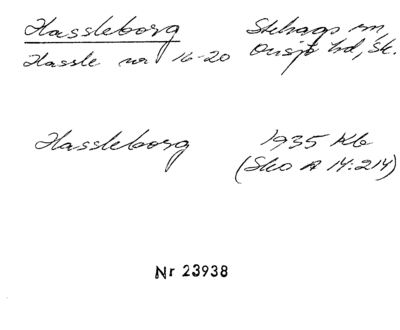 Hassleborg Stehags sn,
Hassle nr 16-20 Onsjö hd, Sk.
Hassleborg 1935 Kb
(Sko A 14:214)
Nr 23938